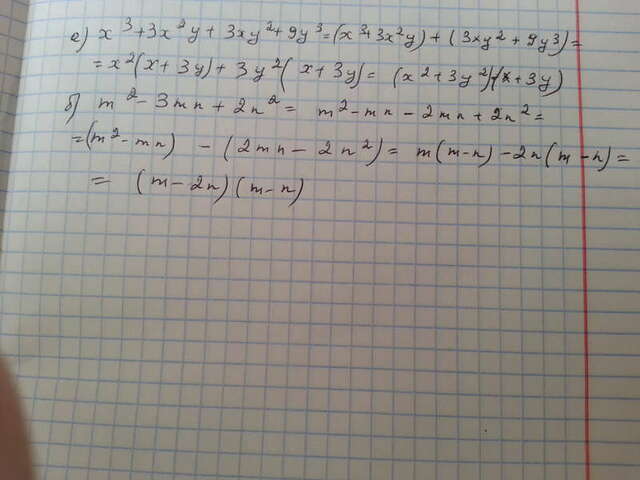 а) x³+3x²y+3xy²+9y³=(x³+3x²y)+(3xy²+9y³)=
=x²(x+3y)+3y²(x+3y)=(x²+3y²)(x+3y)
б) m²-3mn+2n²= m²-mn-2mn+2n²=
=(m²-mn) -(2mn-2n²)= m(m-n)-2n(m-n)=
= (m-2n)(m-n)